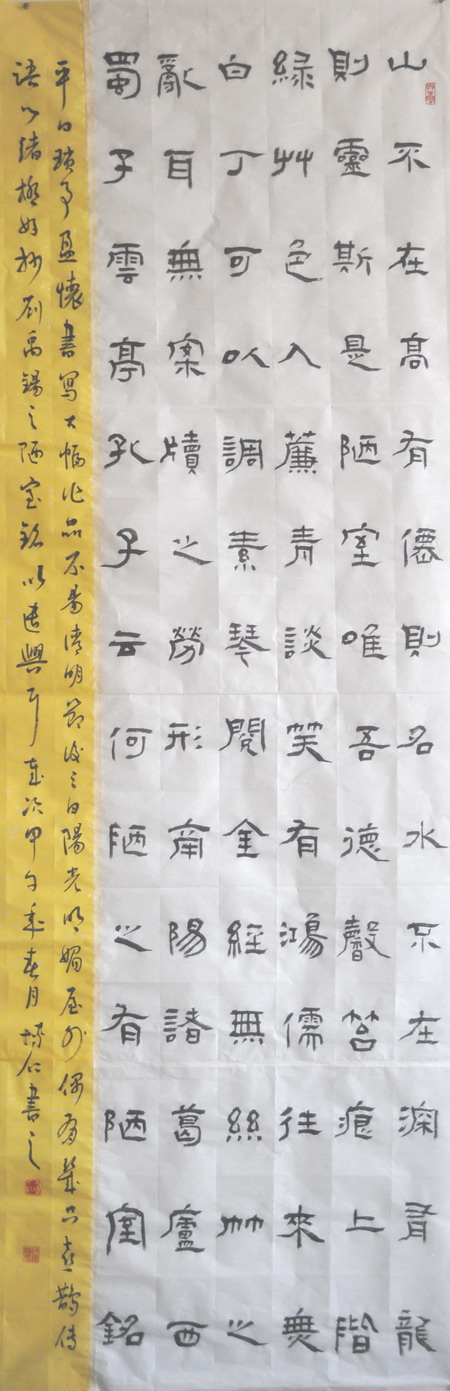 山不在高有僊則名水不在深有龍
則靈斯是陋室唯吾德馨苔痕上階
綠艸色入簾青談笑有鴻儒往來無
白丁可以調素琴閱金經無絲竹之
亂耳無案牘之勞形南陽諸葛廬西
蜀子雲亭孔子云何陋之有陋室銘
平日瑣事盈懷書寫大幅作品不易清明節後之日陽光明媚屋外偶有幾只喜鵲傳
語心緒極好抄劉禹錫之陋室銘以遣興耳歲次甲午春月仁書之